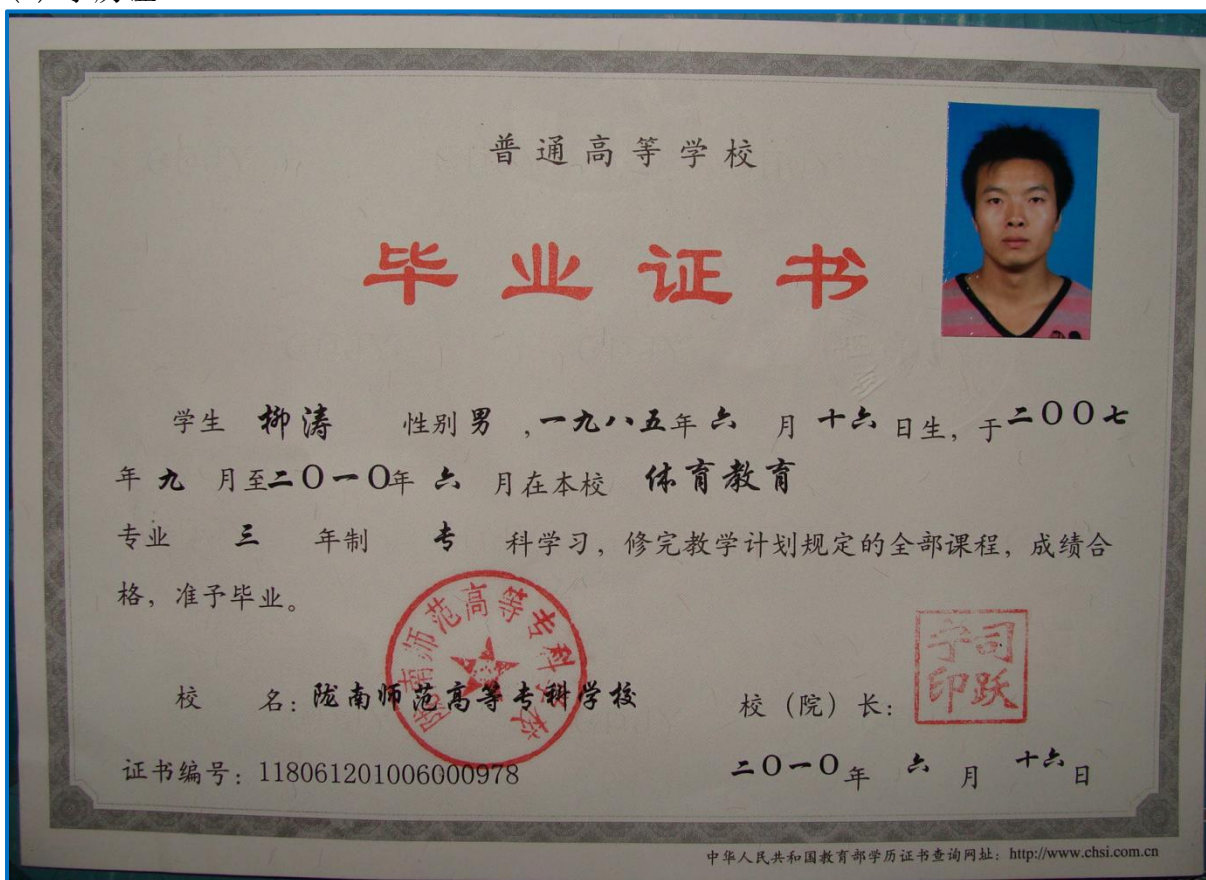 普通高等学校
毕业证书
学生 柳涛 性别 男 ,一九八五年 六 月 十六 日生, 于二〇〇七
年 九 月至二〇一〇年 六 月在本校 体育教育
专业 三 年制 专 科学习, 修完教学计划规定的全部课程, 成绩合
格, 准予毕业。
陇南师范高等专科学校
校 名: 陇南师范高等专科学校 校 (院) 长: 司跃宁印
证书编号: 118061201006000978 二〇一〇年 六 月 十六日
中华人民共和国教育部学历证书查询网址: http://www.chsi.com.cn